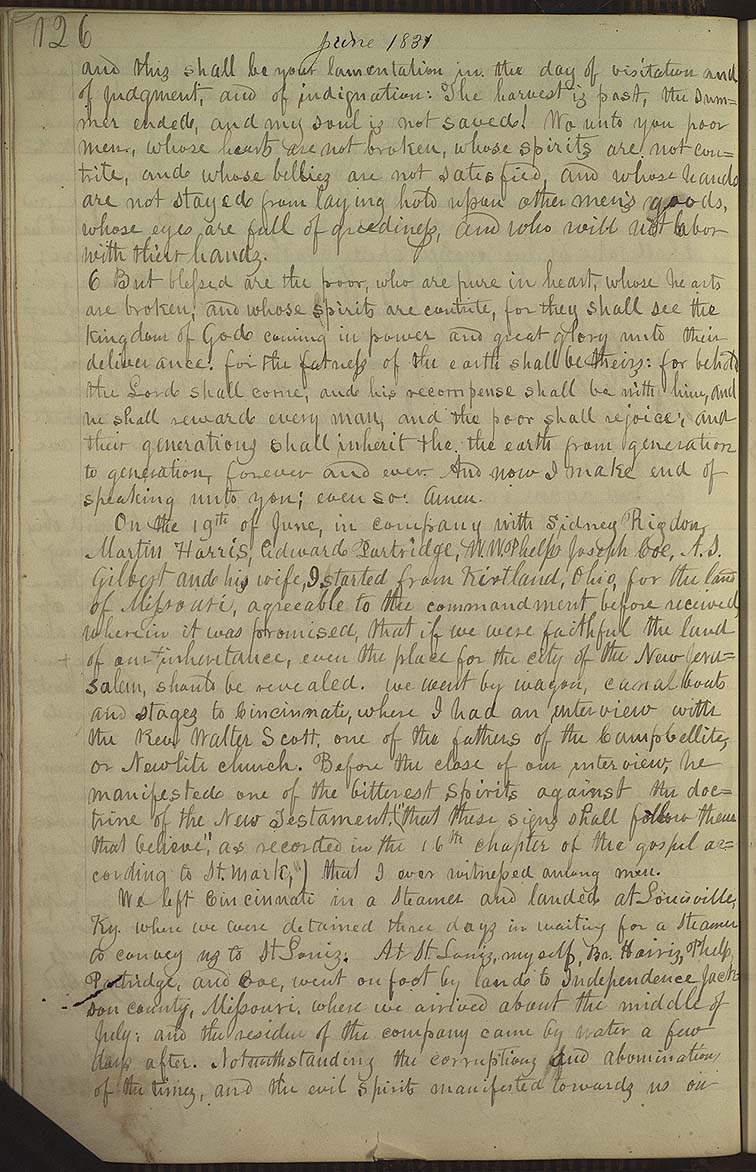 126
June 1831
and this shall be your lamentation in the day of visitation and
of judgment, and of indignation: The harvest is past, the sum=
mer ended, and my soul is not saved! Wo unto you poor
men, whose hearts are not broken, whose spirits are not con=
trite, and whose bellies are not satisfied, and whose hands
are not stayed from laying hold upon other men's goods,
whose eyes are full of greediness, and who will not labor
with their hands.
6 But blessed are the poor, who are pure in heart, whose hearts
are broken, and whose spirits are contrite, for they shall see the
kingdom of God coming in power and great glory unto their
deliverance: for the fatness of the earth shall be theirs: for behold
the Lord shall come, and his recompense shall be with him, and
he shall reward every man, and the poor shall rejoice; and
their generations shall inherit the the earth from generation
to generation, forever and ever. And now I make end of
speaking unto you; even so: Amen.
On the 19th of June, in company with Sidney Rigdon,
Martin Harris, Edward Partridge, W. W. Phelps Joseph Coe, A. S.
Gilbert and his wife, I started from Kirtland, Ohio, for the land
of Missouri, agreeable to the commandment before received,
wherein it was promised, that if we were faithful the land
of our inheritance, even the place for the city of the New Jeru=
salem, should be revealed. we went by wagon, canal boats
and stages to Cincinnati, where I had an interview with
the Rev. Walter Scott, one of the fathers of the Campbellites,
or Newlite church. Before the close of our interview, he
manifested one of the bitterest spirits against the doc=
trine of the New Testament, ("that these signs shall follow them
that believe", as recorded in the 16th chapter of the gospel ac=
cording to St. Mark,) that I ever witnessed among men.
We left Cincinnati in a Steamer and landed at Louisville,
Ky. where we were detained three days in waiting for a Steamer
to convey us to St Louis. At St. Louis, myself, Br. Harris, Phelps,
Partridge, and Coe, went on foot by land to Independence, Jack
son county, Missouri, where we arrived about the middle of
July; and the residue of the company came by water a few
days after. Notwithstanding the corruptions and abominations
of the times, and the evil spirit manifested towards us on